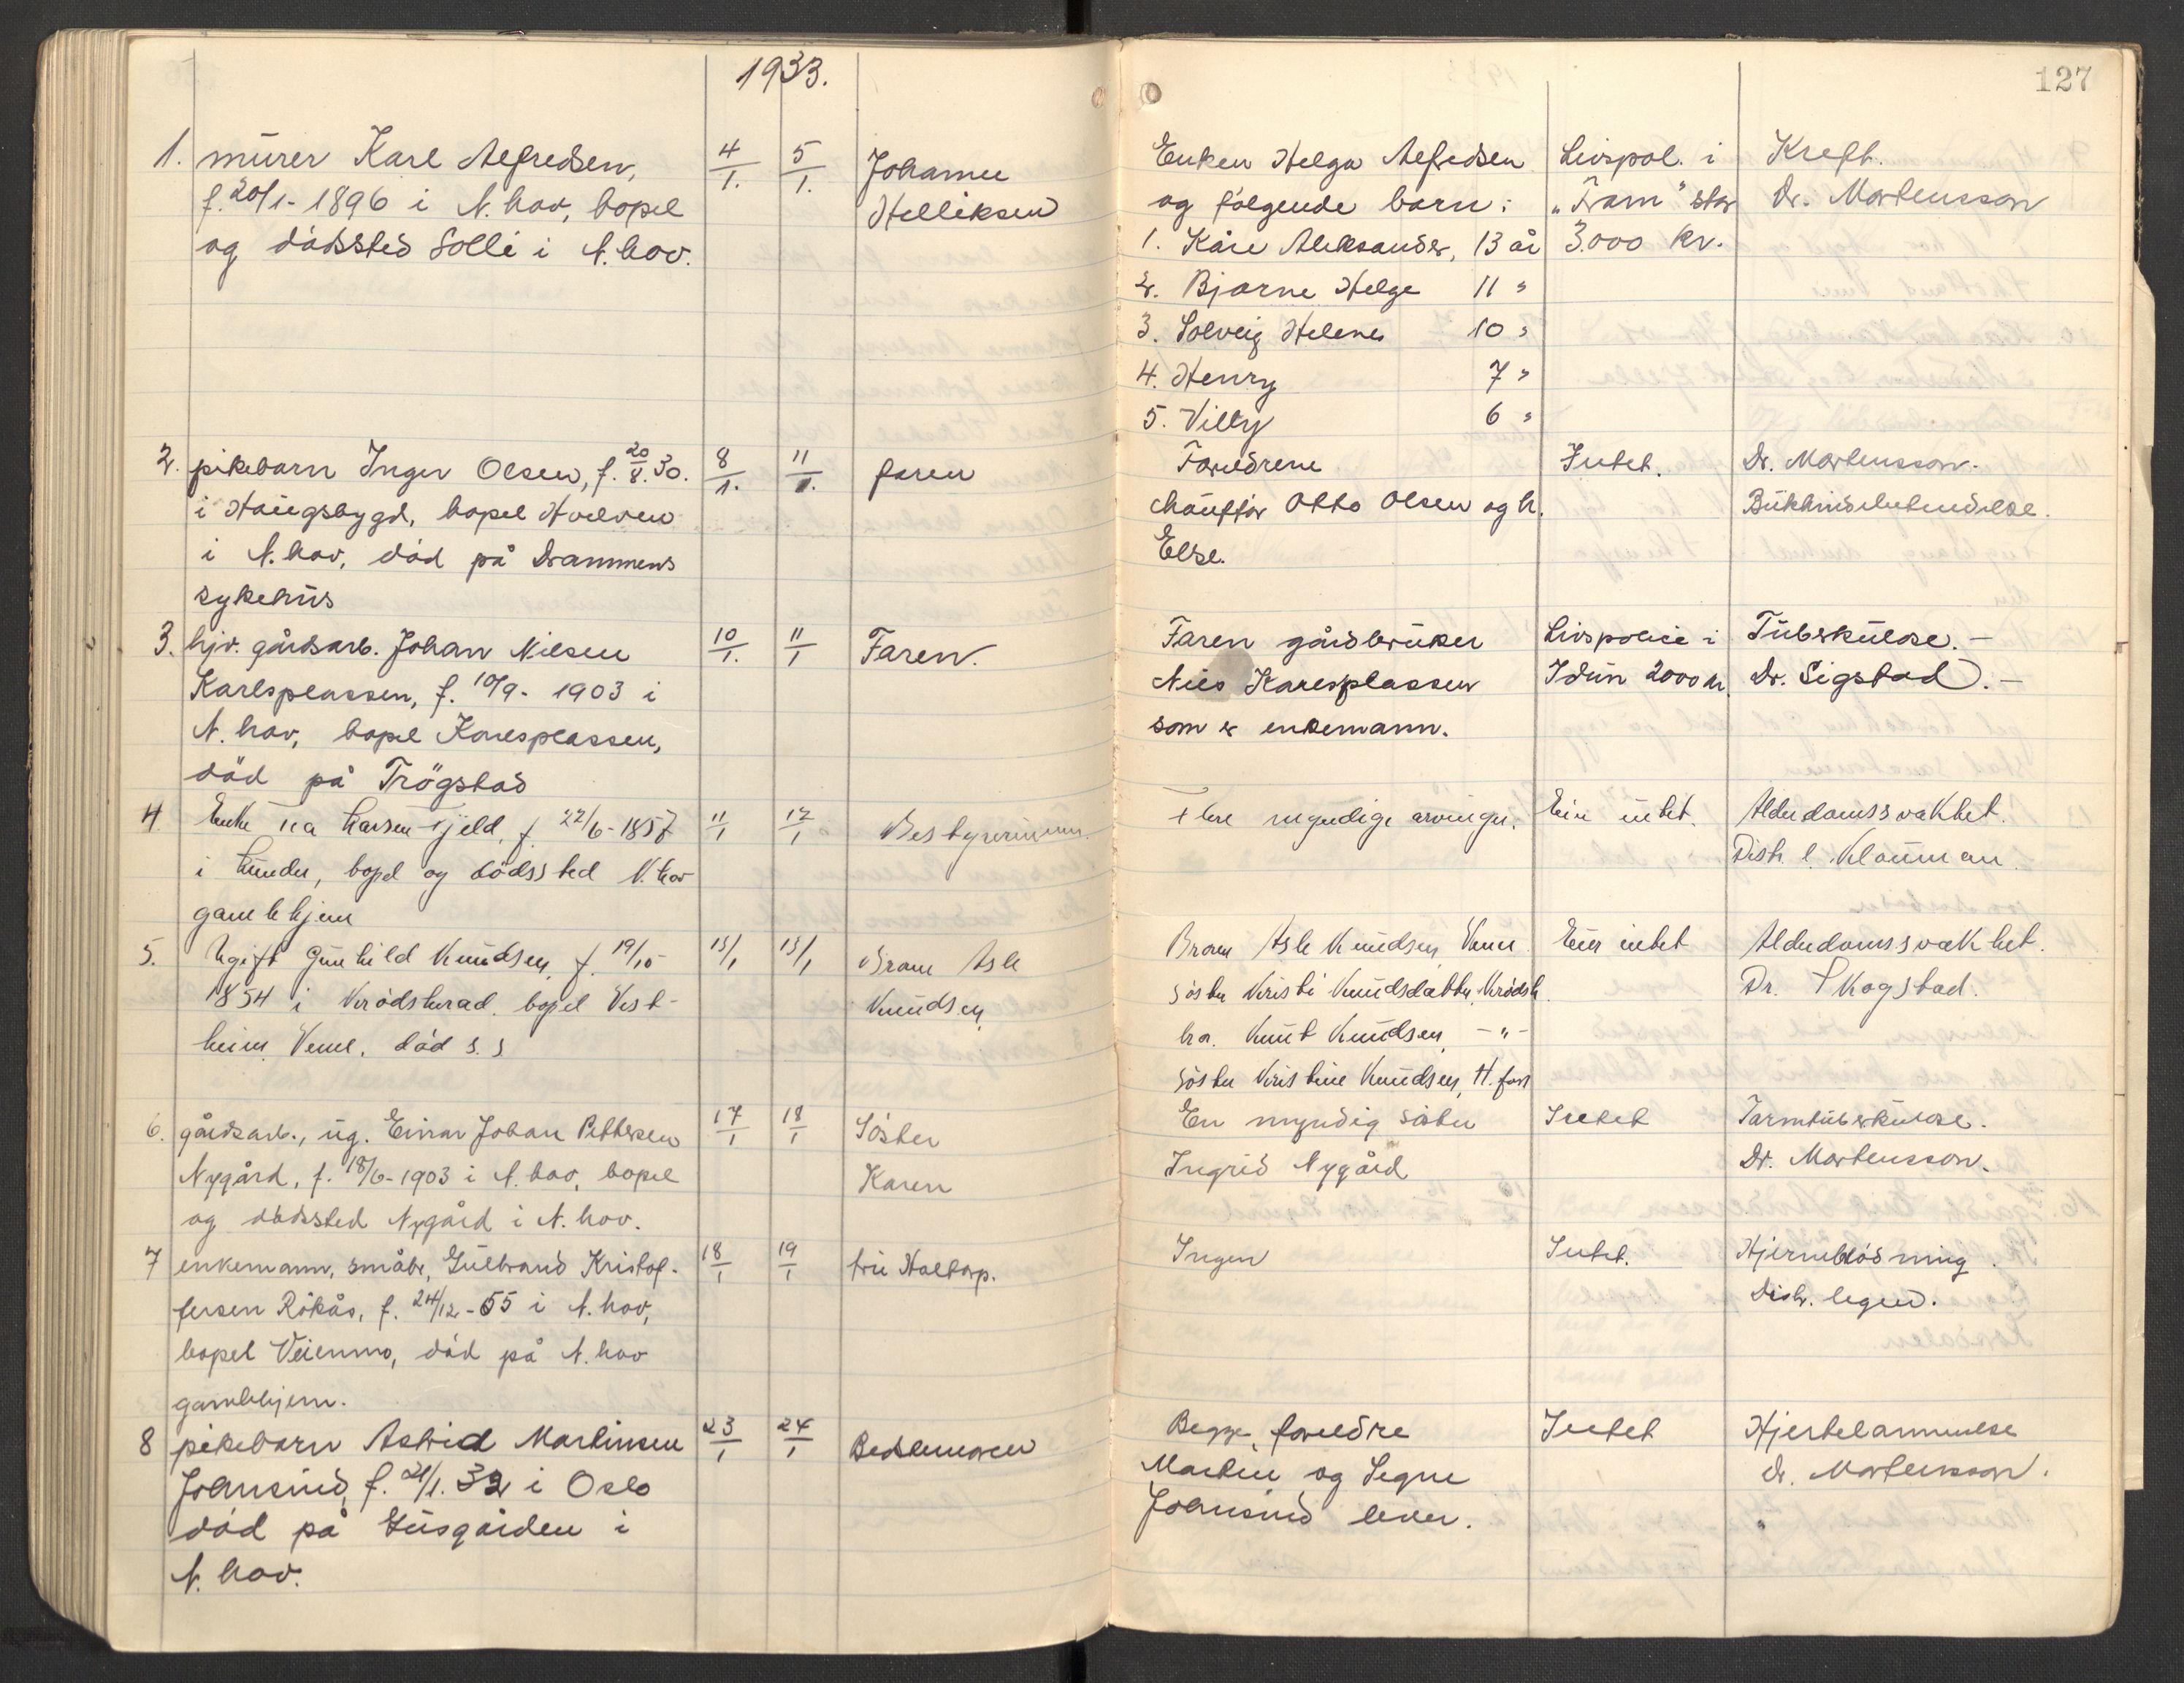 1933.
127
1. murer Karl Alfredsen,
f. 20/1- 1896 i N. hov, bopel
og dødssted Solli i N. hov.
4/1. 5/1.
Johannes
Helliksen
Enken Helga Alfredsen
og følgende barn:
1. Kåre Aleksander, 13 år
2. Bjarne Helge 11 "
3. Solveig Helene 10 "
4. Henry 7 "
5. Villy 6 "
Livspol. i
"Fram" stor
3.000 kr.
Kreft.
Dr. Mortensson
2. pikebarn Inger Olsen, f. 20/8. 30.
i Haugsbygd, bopel
i N. hov, død på Drammens
sykehus
8/1. 11/1.
faren
Foreldrene
chauffør Otto Olsen og h.
Else.
Intet.
Dr. Mortensson.
3. hjv. gårdsarb. Johan Nilsen
Karlsplassen, f. 10/9- 1903 i
N. hov, bopel Karlsplassen,
död på Trögstad
10/1. 11/1
Faren.
Faren gårdbruker
Nils Karlsplassen
som er enkemann.
Livspolice i
Idun 2000 kr.
Tuberkulose. -
Dr. Sigstad. -
4. Enke Larsen Fjeld, f. 22/6-1857
i Lunder, bopel og dödssted N. hov
gamlehjem
11/1 12/1
Bestyrerinnen
Flere myndige arvinger.
Eier intet.
Alderdomssvakhet.
Distr. l. Klouman
5. Ugift Gunhild Knudsen f. 19/10-
1854 i Krödsherad. bopel Vest-
heim Veme, död s. s
13/1 13/1
Broren Asle
Knudsen
Broren Asle Knudsen Veme
söster Kristi Knudsdatter, Krödsh.
bror. Knut Knudsen, -"-
söster Kristine Knudsen, H. foss
Eier intet
Alderdomssvakhet.
Dr. Skogstad.
6. gårdsarb., ug. Einar Johan Pettersen
Nygård, f. 18/6-1903 i N. hov, bopel
og dødssted Nygård i N. hov.
17/1 18/1
Söster
Karen
En myndig søster
Ingrid Nygård
Intet
Tarmtuberkulose.
Dr. Mortensson.
7 enkemann, småbr, Gulbrand Kristof-
fersen Rökås, f. 24/12-55 i N. hov,
bopel Veienmo, død på N. hov
gamlehjem.
18/1 19/1
fru Haltorp.
Ingen
Intet.
Hjerneblødning.
Distr. legen.
8 pikebarn Astrid Martinsen
Johnsrud, f. 21/1. 32 i Oslo
død på Gusgården i
N. hov.
23/1 24/1
Bedstemoren
Begge foreldre
Martin og Signe
Johnsrud lever.
Intet
Hjertelammelse
Dr. Mortensson.